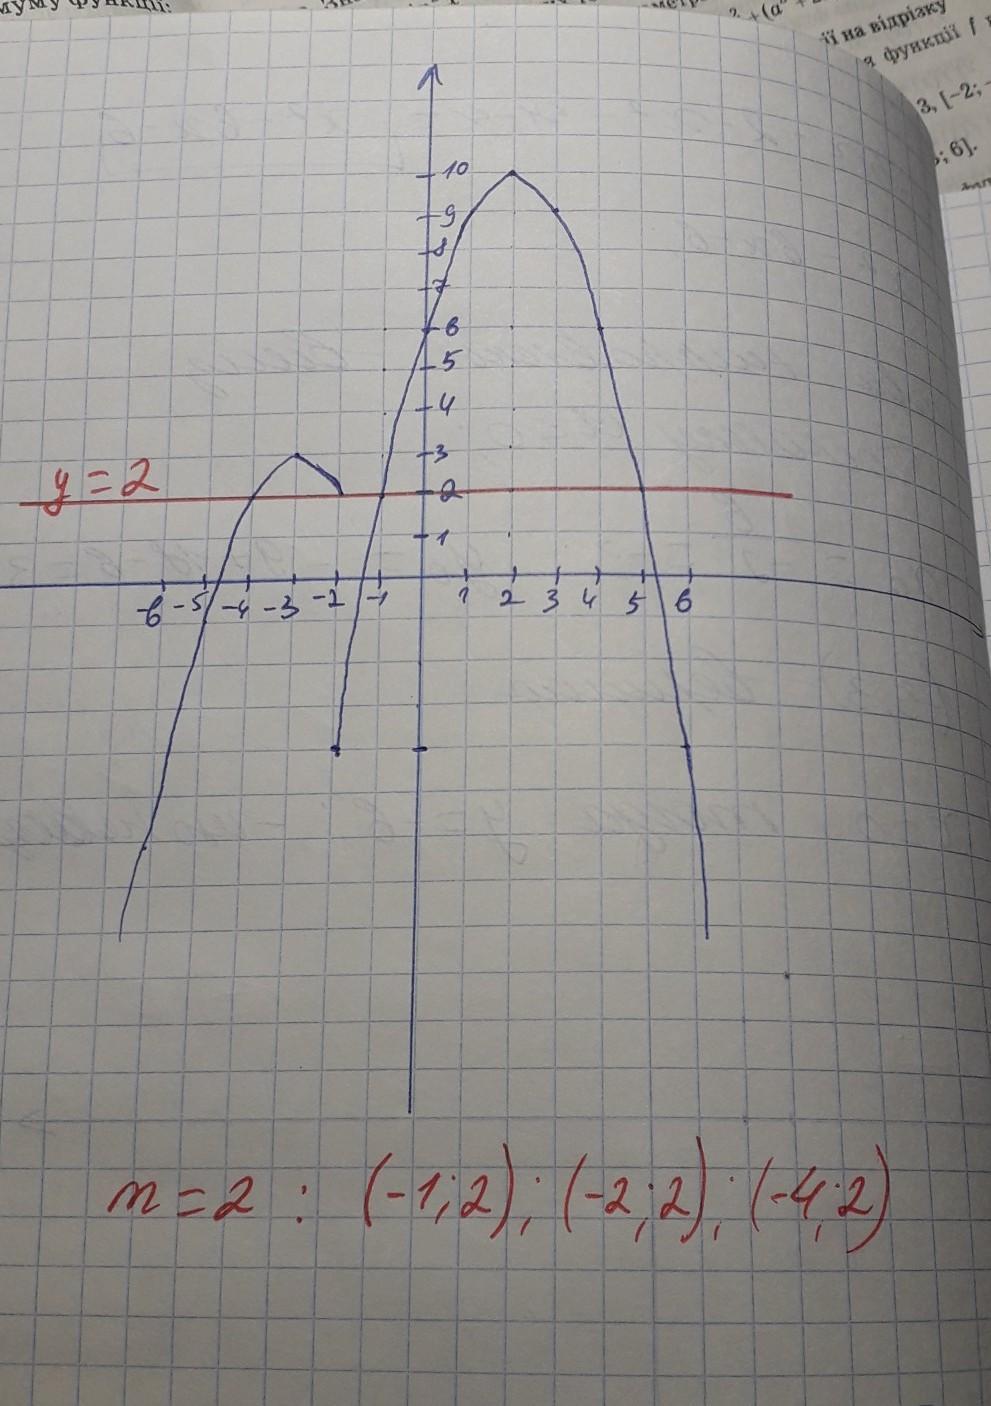 муму функції:
ії на відрізку
я функції f
3, [-2; -
; 6].
10
9
8
7
6
5
4
3
y = 2
2
1
-6 -5 -4 -3 -2 -1 1 2 3 4 5 6
m = 2 : (-1; 2); (-2; 2); (-4; 2)